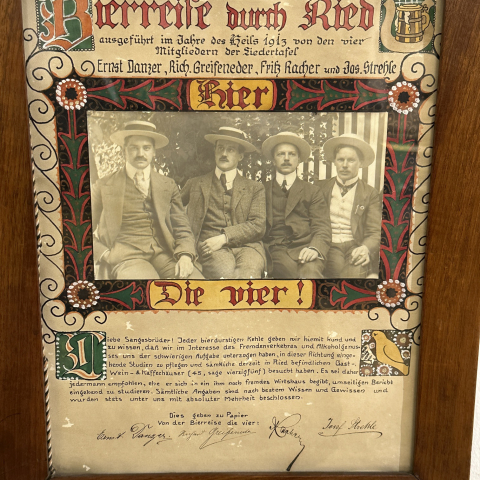 Bierreise durch Ried
ausgeführt im Jahre des Heils 1913 von den vier
Mitgliedern der Liedertafel
Ernst Danzer, Rich. Greifeneder, Fritz Racher und Jos. Strehle
Hier
Die vier!
Liebe Sangesbrüder! Jeder bierdurstigen Kehle geben wir hiermit kund und
zu wissen, daß wir im Interesse des Fremdenverkehres und Alkoholgenus-
ses uns der schwierigen Aufgabe unterzogen haben, in dieser Richtung einge-
hende Studien zu pflegen und sämtliche derzeit in Ried befindlichen Gast-
Wein- & Kaffeehäuser (45, sage vierzigfünf) besucht haben. Es sei daher
jedermann empfohlen, ehe er sich in ein ihm noch fremdes Wirtshaus begibt, umseitigen Bericht
eingehend zu studieren. Sämtliche Angaben sind nach bestem Wissen und Gewissen und
wurden stets unter uns mit absoluter Mehrheit beschlossen.
Dies geben zu Papier
Von der Bierreise die vier:
Ernst Danzer Greifeneder Racher Josef Strehle